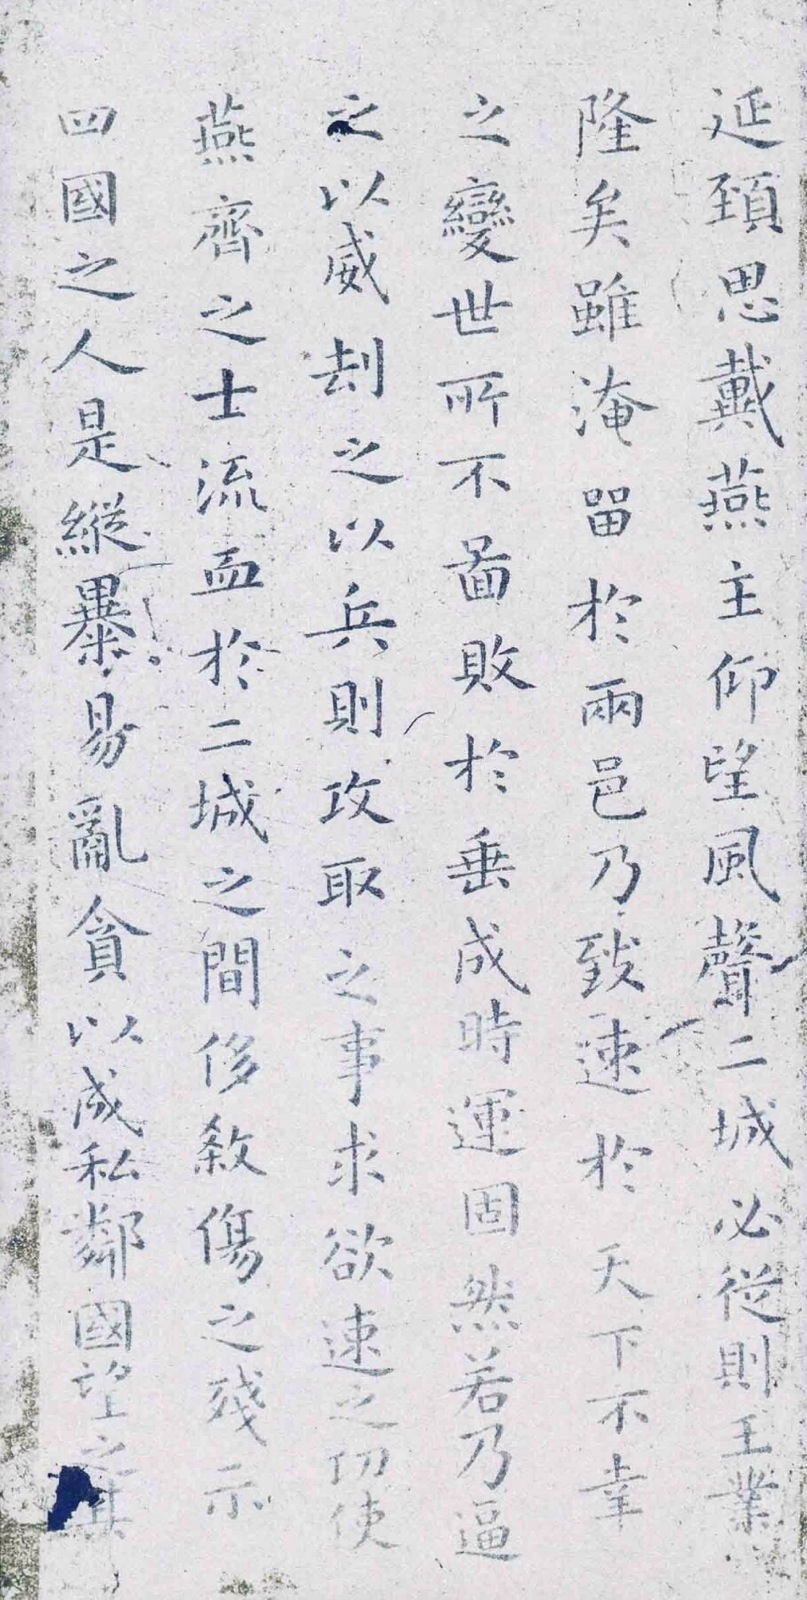 延頚思戴燕主仰望風聲二城必從則王業
隆矣雖淹留於兩邑乃致速於天下不幸
之變世所不啚敗於垂成時運固然若乃逼
之以威刦之以兵則攻取之事求欲速之功使
燕齊之士流血於二城之間侈敘傷之殘示
四國之人是縱暴易亂貪以成私鄰國望之其